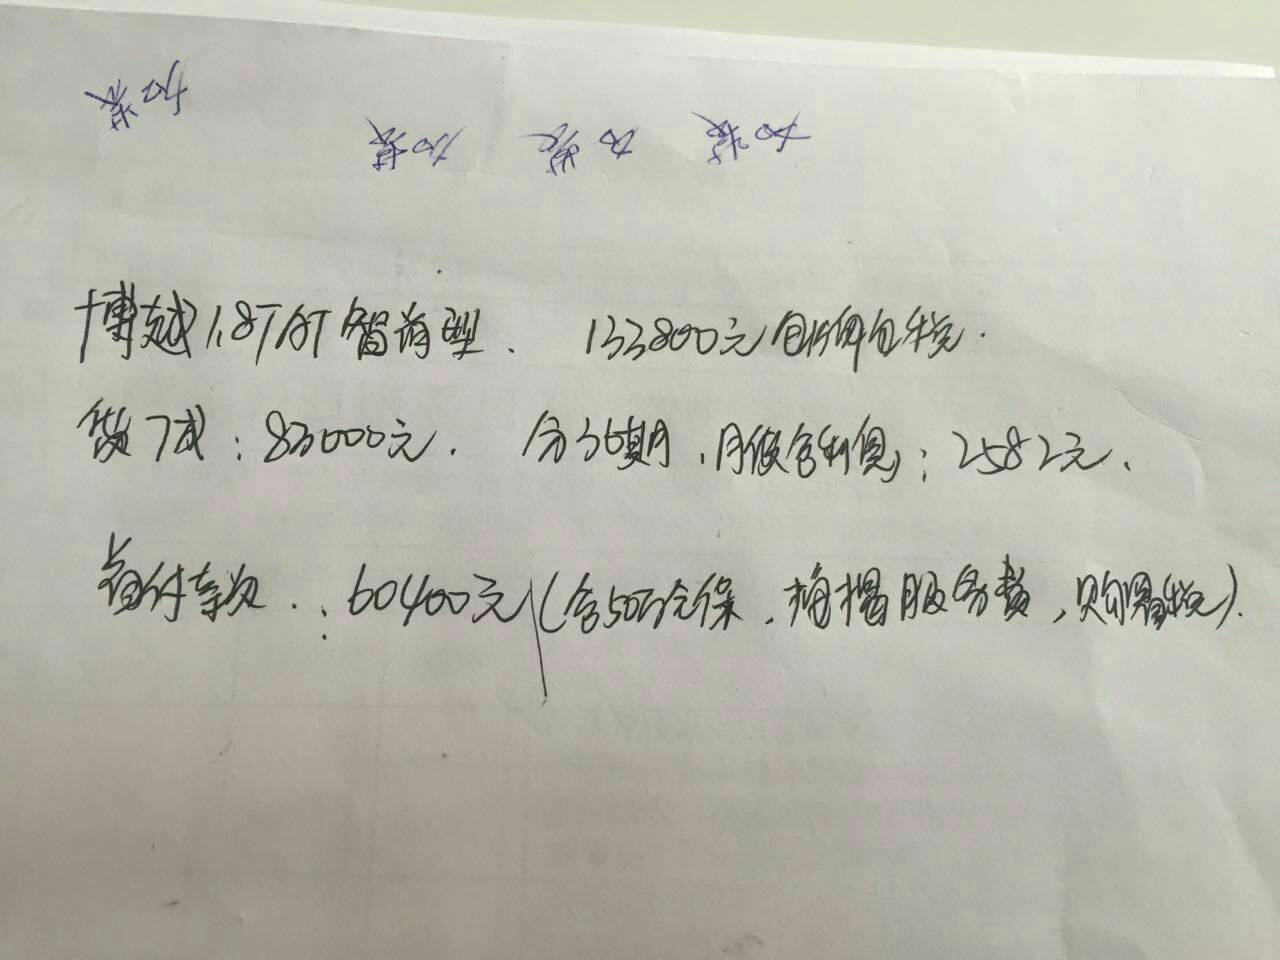 博越1.8TAT智尚型. 133800元包牌包税.
贷7成:83000元. 分36期,月供含利息:2582元.
首付款:60400元(含50万全保,按揭服务费,购置税).